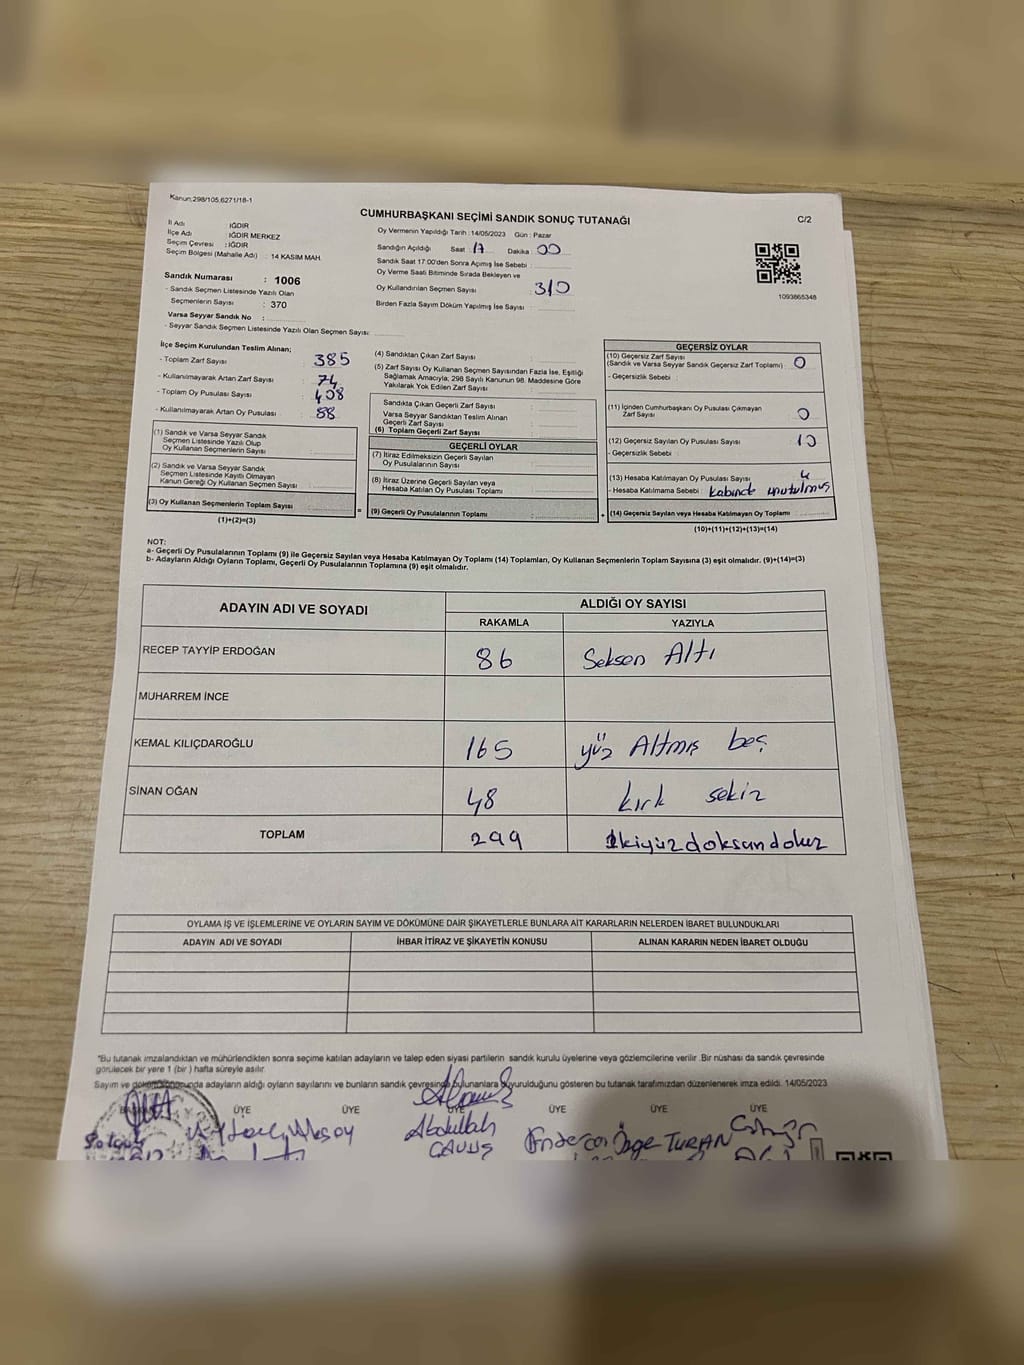 Kanun;298/105,6271/18-1
CUMHURBAŞKANI SEÇİMİ SANDIK SONUÇ TUTANAĞI
C/2
İl Adı : IĞDIR
İlçe Adı : IĞDIR MERKEZ
Seçim Çevresi : IĞDIR
Seçim Bölgesi (Mahalle Adı) : 14 KASIM MAH.
Sandık Numarası : 1006
- Sandık Seçmen Listesinde Yazılı Olan
Seçmenlerin Sayısı : 370
Varsa Seyyar Sandık No :
- Seyyar Sandık Seçmen Listesinde Yazılı Olan Seçmen Sayısı:
Oy Vermenin Yapıldığı Tarih : 14/05/2023 Gün : Pazar
Sandığın Açıldığı Saat : 17 Dakika : 00
Sandık Saat 17.00'den Sonra Açımış İse Sebebi :
Oy Verme Saati Bitiminde Sırada Bekleyen ve
Oy Kullandırılan Seçmen Sayısı : 310
Birden Fazla Sayım Döküm Yapılmış İse Sayısı :
1093865348
İlçe Seçim Kurulundan Teslim Alınan;
- Toplam Zarf Sayısı : 385
- Kullanılmayarak Artan Zarf Sayısı : 74
- Toplam Oy Pusulası Sayısı : 408
- Kullanılmayarak Artan Oy Pusulası : 88
(1) Sandık ve Varsa Seyyar Sandık
Seçmen Listesinde Yazılı Olup
Oy Kullanan Seçmenlerin Sayısı :
(2) Sandık ve Varsa Seyyar Sandık
Seçmen Listesinde Kayıtlı Olmayan
Kanun Gereği Oy Kullanan Seçmen Sayısı :
(3) Oy Kullanan Seçmenlerin Toplam Sayısı :
(1)+(2)=(3)
(4) Sandıktan Çıkan Zarf Sayısı :
(5) Zarf Sayısı Oy Kullanan Seçmen Sayısından Fazla İse, Eşitliği
Sağlamak Amacıyla; 298 Sayılı Kanunun 98. Maddesine Göre
Yakılarak Yok Edilen Zarf Sayısı :
Sandıkta Çıkan Geçerli Zarf Sayısı :
Varsa Seyyar Sandıktan Teslim Alınan
Geçerli Zarf Sayısı :
(6) Toplam Geçerli Zarf Sayısı :
GEÇERLİ OYLAR
(7) İtiraz Edilmeksizin Geçerli Sayılan
Oy Pusulalarının Sayısı :
(8) İtiraz Üzerine Geçerli Sayılan veya
Hesaba Katılan Oy Pusulası Toplamı :
= (9) Geçerli Oy Pusulalarının Toplamı :
GEÇERSİZ OYLAR
(10) Geçersiz Zarf Sayısı
(Sandık ve Varsa Seyyar Sandık Geçersiz Zarf Toplamı) : 0
- Geçersizlik Sebebi :
(11) İçinden Cumhurbaşkanı Oy Pusulası Çıkmayan
Zarf Sayısı : 0
(12) Geçersiz Sayılan Oy Pusulası Sayısı : 10
- Geçersizlik Sebebi :
(13) Hesaba Katılmayan Oy Pusulası Sayısı : 4
- Hesaba Katılmama Sebebi : kabinde unutulmuş
+ (14) Geçersiz Sayılan veya Hesaba Katılmayan Oy Toplamı :
(10)+(11)+(12)+(13)=(14)
NOT:
a- Geçerli Oy Pusulalarının Toplamı (9) ile Geçersiz Sayılan veya Hesaba Katılmayan Oy Toplamı (14) Toplamları, Oy Kullanan Seçmenlerin Toplam Sayısına (3) eşit olmalıdır. (9)+(14)=(3)
b- Adayların Aldığı Oyların Toplamı, Geçerli Oy Pusulalarının Toplamına (9) eşit olmalıdır.
ADAYIN ADI VE SOYADI ALDIĞI OY SAYISI
RAKAMLA YAZIYLA
RECEP TAYYİP ERDOĞAN 86 Seksen Altı
MUHARREM İNCE
KEMAL KILIÇDAROĞLU 165 yüz Altmış beş
SİNAN OĞAN 48 kırk sekiz
TOPLAM 299 ikiyüzdoksandokuz
OYLAMA İŞ VE İŞLEMLERİNE VE OYLARIN SAYIM VE DÖKÜMÜNE DAİR ŞİKAYETLERLE BUNLARA AİT KARARLARIN NELERDEN İBARET BULUNDUKLARI
ADAYIN ADI VE SOYADI İHBAR İTİRAZ VE ŞİKAYETİN KONUSU ALINAN KARARIN NEDEN İBARET OLDUĞU
*Bu tutanak imzalandıktan ve mühürlendikten sonra seçime katılan adayların ve talep eden siyasi partilerin sandık kurulu üyelerine veya gözlemcilerine verilir. Bir nüshası da sandık çevresinde
görülecek bir yere 1 (bir ) hafta süreyle asılır.
Sayım ve dökümü sonunda adayların aldığı oyların sayılarını ve bunların sandık çevresinde bulunanlara duyurulduğunu gösteren bu tutanak tarafımızdan düzenlenerek imza edildi. 14/05/2023
ÜYE ÜYE ÜYE ÜYE ÜYE ÜYE
Abdullah
ÇAVUŞ
Özge TURAN